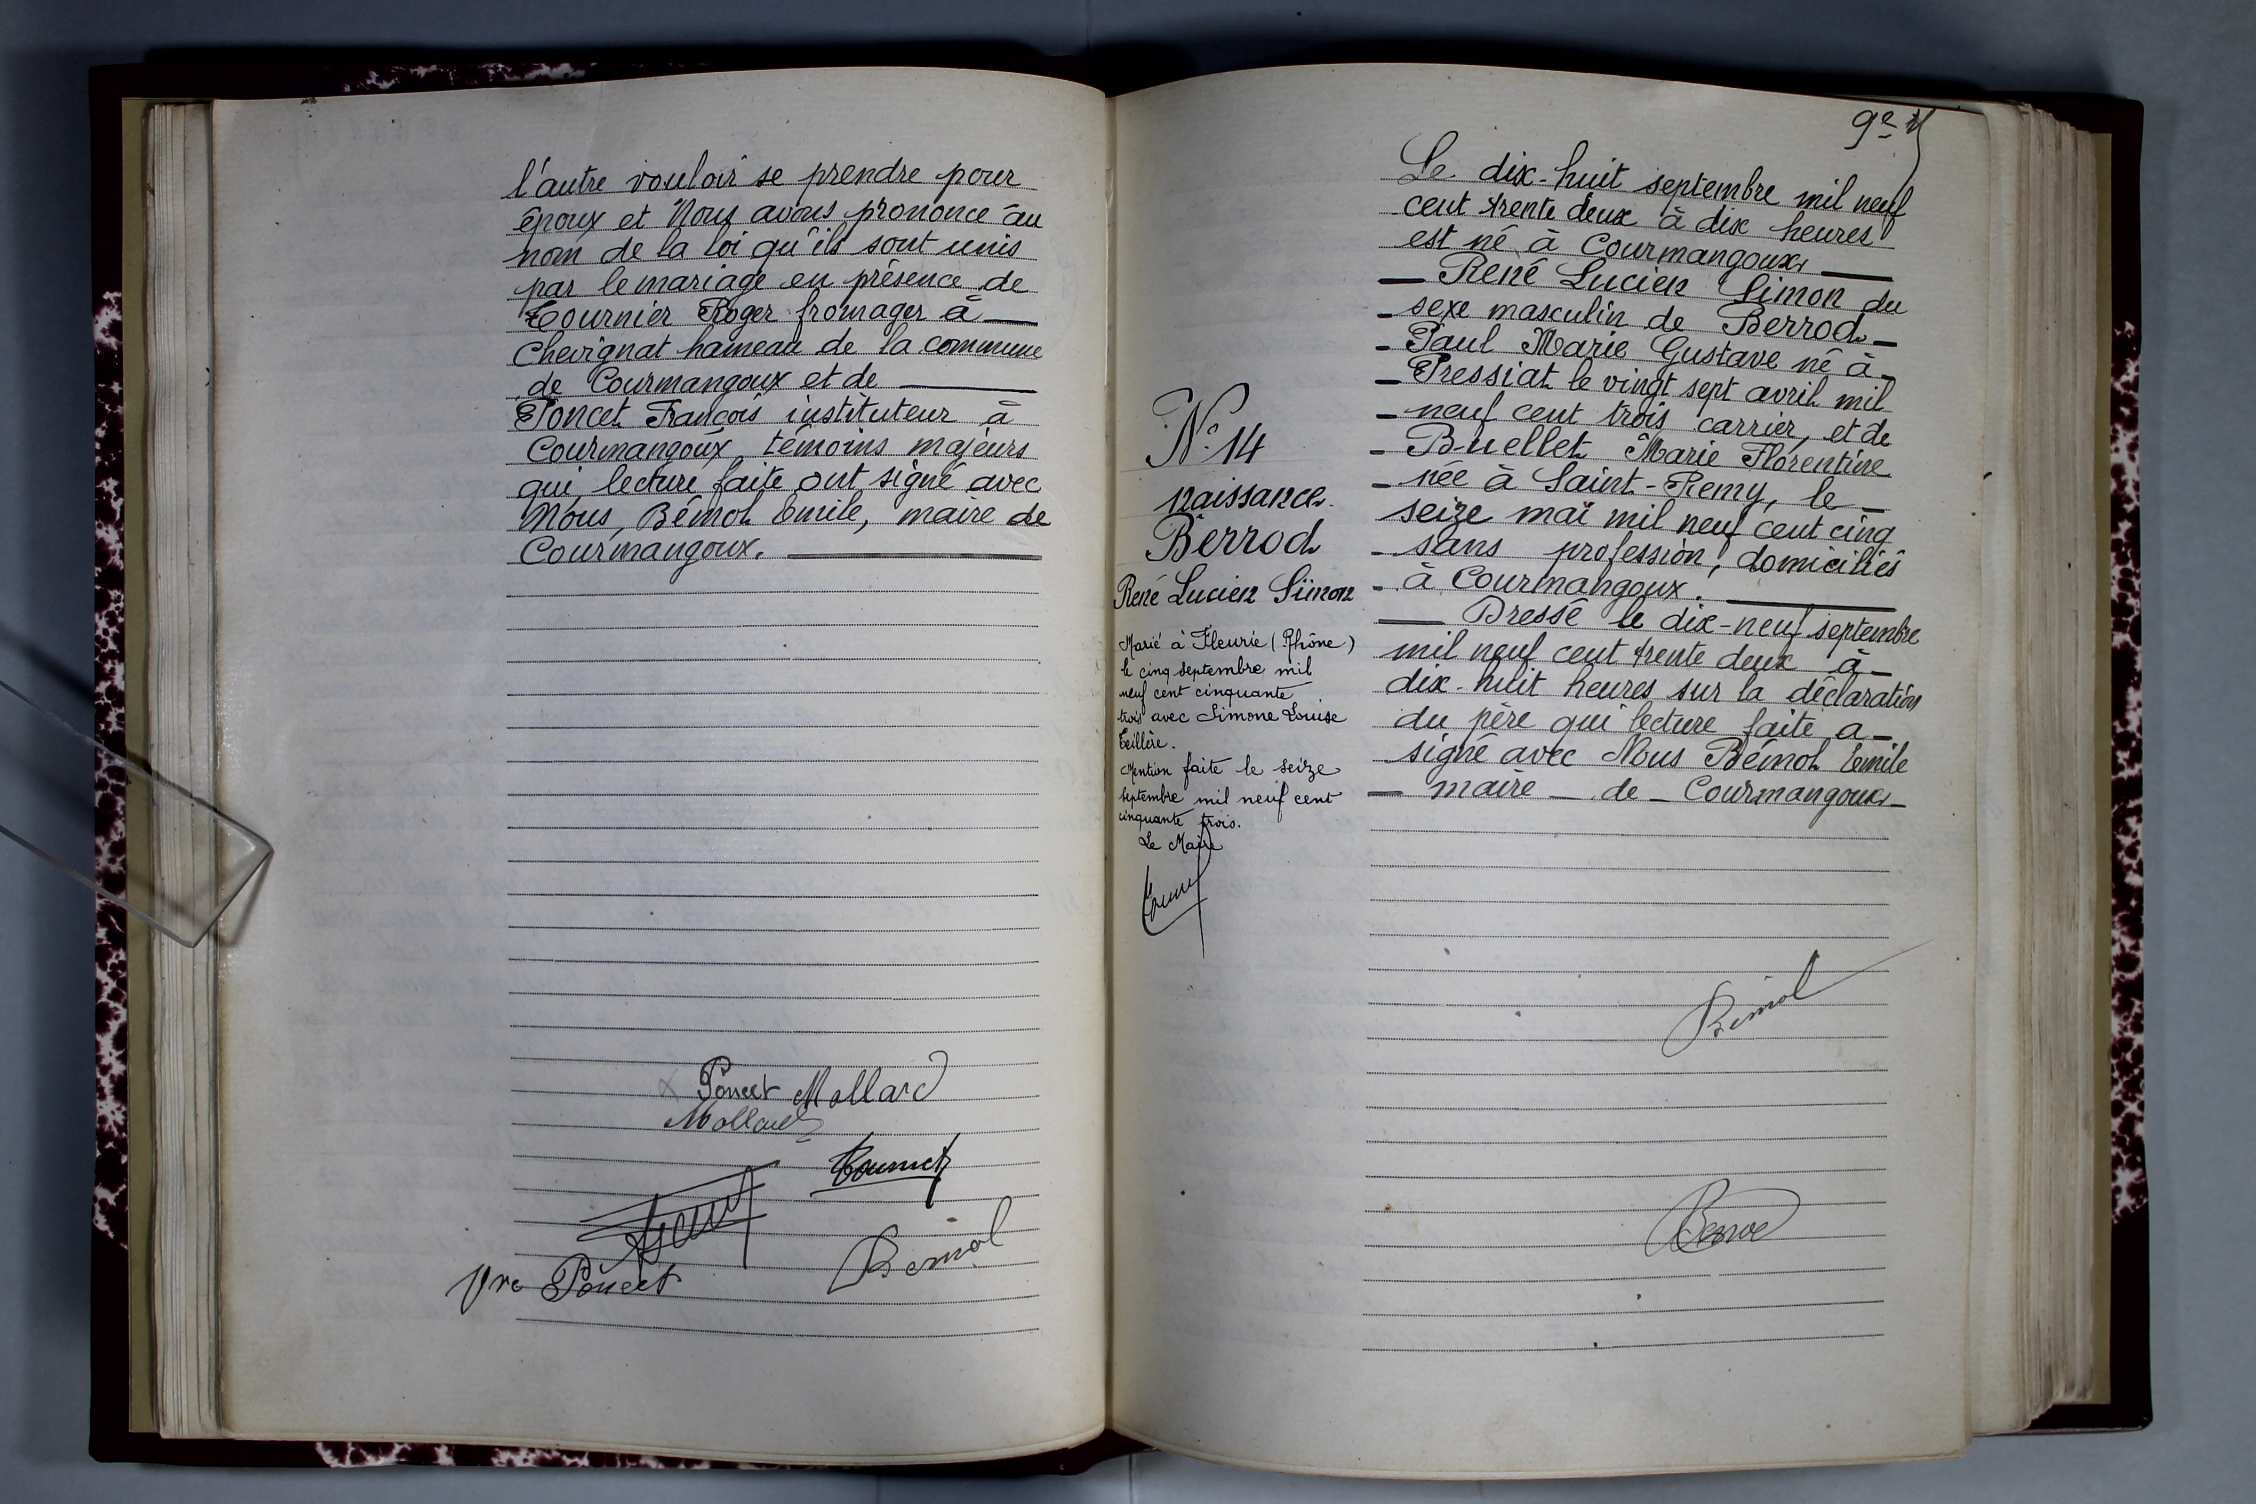 l'autre vouloir se prendre pour
époux et Nous avons prononcé au
nom de la loi qu'ils sont unis
par le mariage en présence de
Tournier Roger fromager à
Chevignat hameau de la commune
de Courmangoux et de
Poncet François instituteur à
Courmangoux témoins majeurs
qui lecture faite ont signé avec
Nous, Bémol Emile, maire de
Courmangoux.
Poncet Mollard
Mollard
Vve Poncet
Bémol
9e
N° 14
naissance
Berrod
René Lucien Simon
Marié à Fleurie (Rhône)
le cinq septembre mil
neuf cent cinquante
trois avec Simone Louise
Teillère.
Mention faite le seize
septembre mil neuf cent
cinquante trois.
Le Maire
Le dix-huit septembre mil neuf
cent trente deux à dix heures
est né à Courmangoux
René Lucien Simon du
sexe masculin de Berrod
Paul Marie Gustave né à
Pressiat le vingt sept avril mil
neuf cent trois carrier, et de
Buellet Marie Florentine
née à Saint-Remy, le
seize mai mil neuf cent cinq
sans profession, domiciliés
à Courmangoux.
Dressé le dix-neuf septembre
mil neuf cent trente deux à
dix-huit heures sur la déclaration
du père qui lecture faite a
signé avec Nous Bémol Emile
maire de Courmangoux
Bémol
Berrod